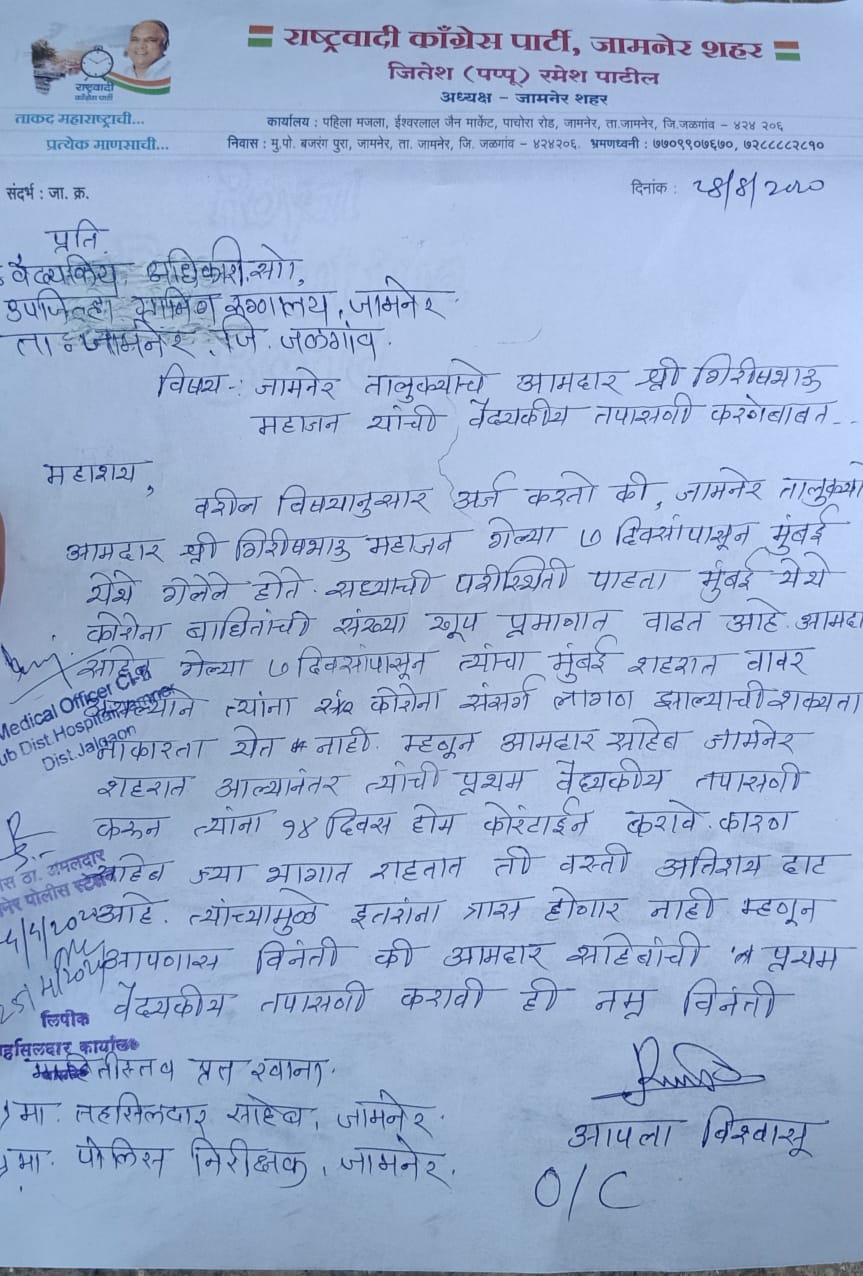 राष्ट्रवादी काँग्रेस पार्टी, जामनेर शहर
जितेश (पप्पू) रमेश पाटील
अध्यक्ष - जामनेर शहर
राष्ट्रवादी
काँग्रेस पार्टी
ताकद महाराष्ट्राची...
प्रत्येक माणसाची...
कार्यालय : पहिला मजला, ईश्वरलाल जैन मार्केट, पाचोरा रोड, जामनेर, ता.जामनेर, जि.जळगांव - ४२४ २०६
निवास : मु.पो. बजरंग पुरा, जामनेर, ता. जामनेर, जि. जळगांव - ४२४२०६. भ्रमणध्वनी : ७७०९९०७६७०, ७२८८८८२८१०
संदर्भ : जा. क्र.
दिनांक :
प्रति,
वैद्यकिय अधिकारी सो,
उपजिल्हा ग्रामिण रुग्णालय, जामनेर.
ता. जामनेर, जि. जळगांव.
विषय -: जामनेर तालुक्याचे आमदार श्री गिरीषभाऊ
महाजन यांची वैद्यकीय तपासणी करणेबाबत...
महाशय,
वरील विषयानुसार अर्ज करतो की, जामनेर
आमदार श्री गिरीषभाऊ महाजन गेल्या ७ दिवसांपासून मुंबई
येथे गेलेले होते. सध्याची परीस्थिती पाहता मुंबई येथे
कोरोना बाधितांची संख्या खूप प्रमाणात वाढत आहे.
साहेब गेल्या ७ दिवसांपासून त्यांचा मुंबई शहरात वावर
त्यांना कोरोना संसर्ग लागण झाल्याची शक्यता
नाकारता येत नाही. म्हणून आमदार साहेब जामनेर
शहरात आल्यानंतर त्यांची प्रथम वैद्यकीय तपासणी
करून त्यांना १४ दिवस होम कोरंटाईन करावे. कारण
साहेब ज्या भागात राहतात ती वस्ती अतिशय दाट
आहे. त्यांच्यामुळे इतरांना त्रास होणार नाही म्हणून
आपणास विनंती की आमदार साहेबांची प्रथम
वैद्यकीय तपासणी करावी ही नम्र विनंती
Medical Officer
Sub Dist Hospital Jamner
Dist. Jalgaon
ठा. अंमलदार
पोलीस स्टेशन
लिपीक
तहसिलदार कार्यालय
प्रत रवाना.
मा. तहसिलदार साहेब, जामनेर.
मा. पोलिस निरीक्षक, जामनेर.
आपला विश्वासू
O/C